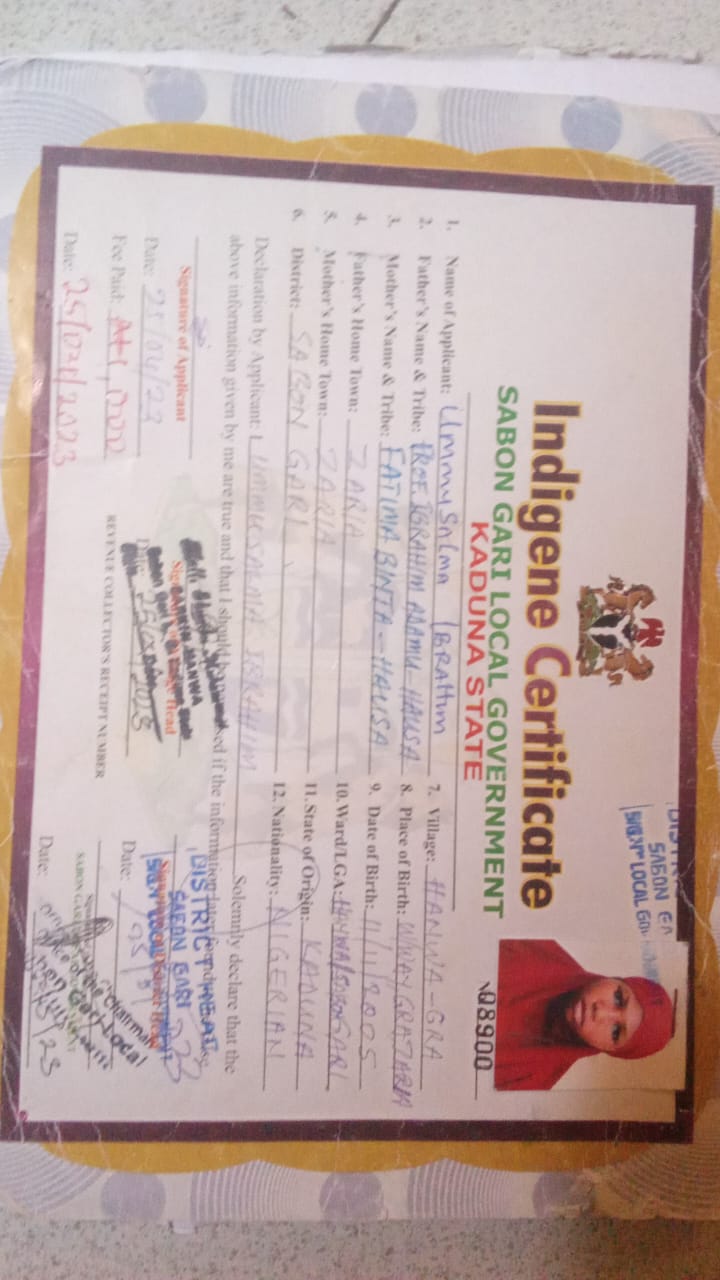 Indigene Certificate
SABON GARI LOCAL GOVERNMENT
KADUNA STATE
08900
1. Name of Applicant: Ummysalma IBRAHIM
2. Father's Name & Tribe: PROF. IBRAHIM ADAMU - HAUSA
3. Mother's Name & Tribe: FATIMA BINTA - HAUSA
4. Father's Home Town: ZARIA
5. Mother's Home Town: ZARIA
6. District: SABON GARI
7. Village: HANWA - GRA
8. Place of Birth: GRA ZARIA
9. Date of Birth: 11/1/2005
10. Ward/LGA: HANWA/SABON GARI
11. State of Origin: KADUNA
12. Nationality: NIGERIAN
Declaration by Applicant: I UMMUSALMA IBRAHIM Solemnly declare that the
above information given by me are true and that I should be if the information
Signature of Applicant
Date: 25/04/23
Date:
DISTRICT HEAD
SABON GARI
Date:
Fee Paid: 
REVENUE COLLECTOR'S RECEIPT NUMBER
Chairman
Date: 25/04/2023
Date:
SABON GA
LOCAL GOV